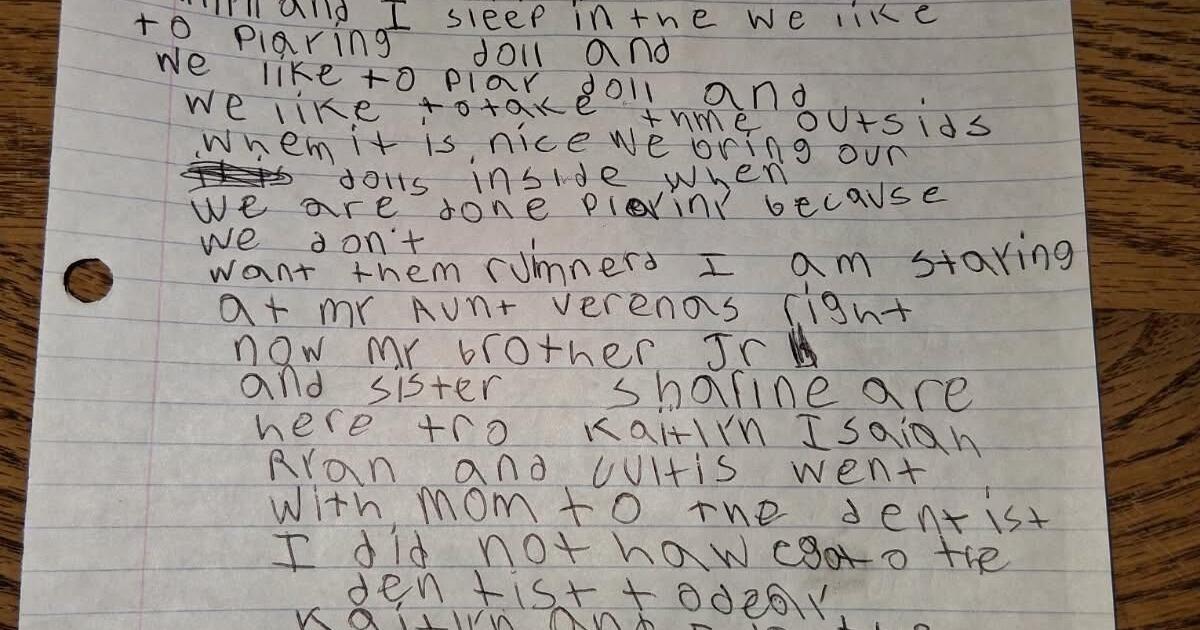 and I sleep in the we like
to plaring doll and
we like to plar doll and
we like to take thme outsids
whem it is nice we bring our
dolls inside when
we are done plarinr because
we don't
want them ruinnerd I am staring
at mr Aunt verenas right
now mr brother Jr
and sister sharine are
here tro Kaitlrn Isaiah
Rran and went
with mom to the dentist
I did not haw to the
dentist todear
Kaitlrn and